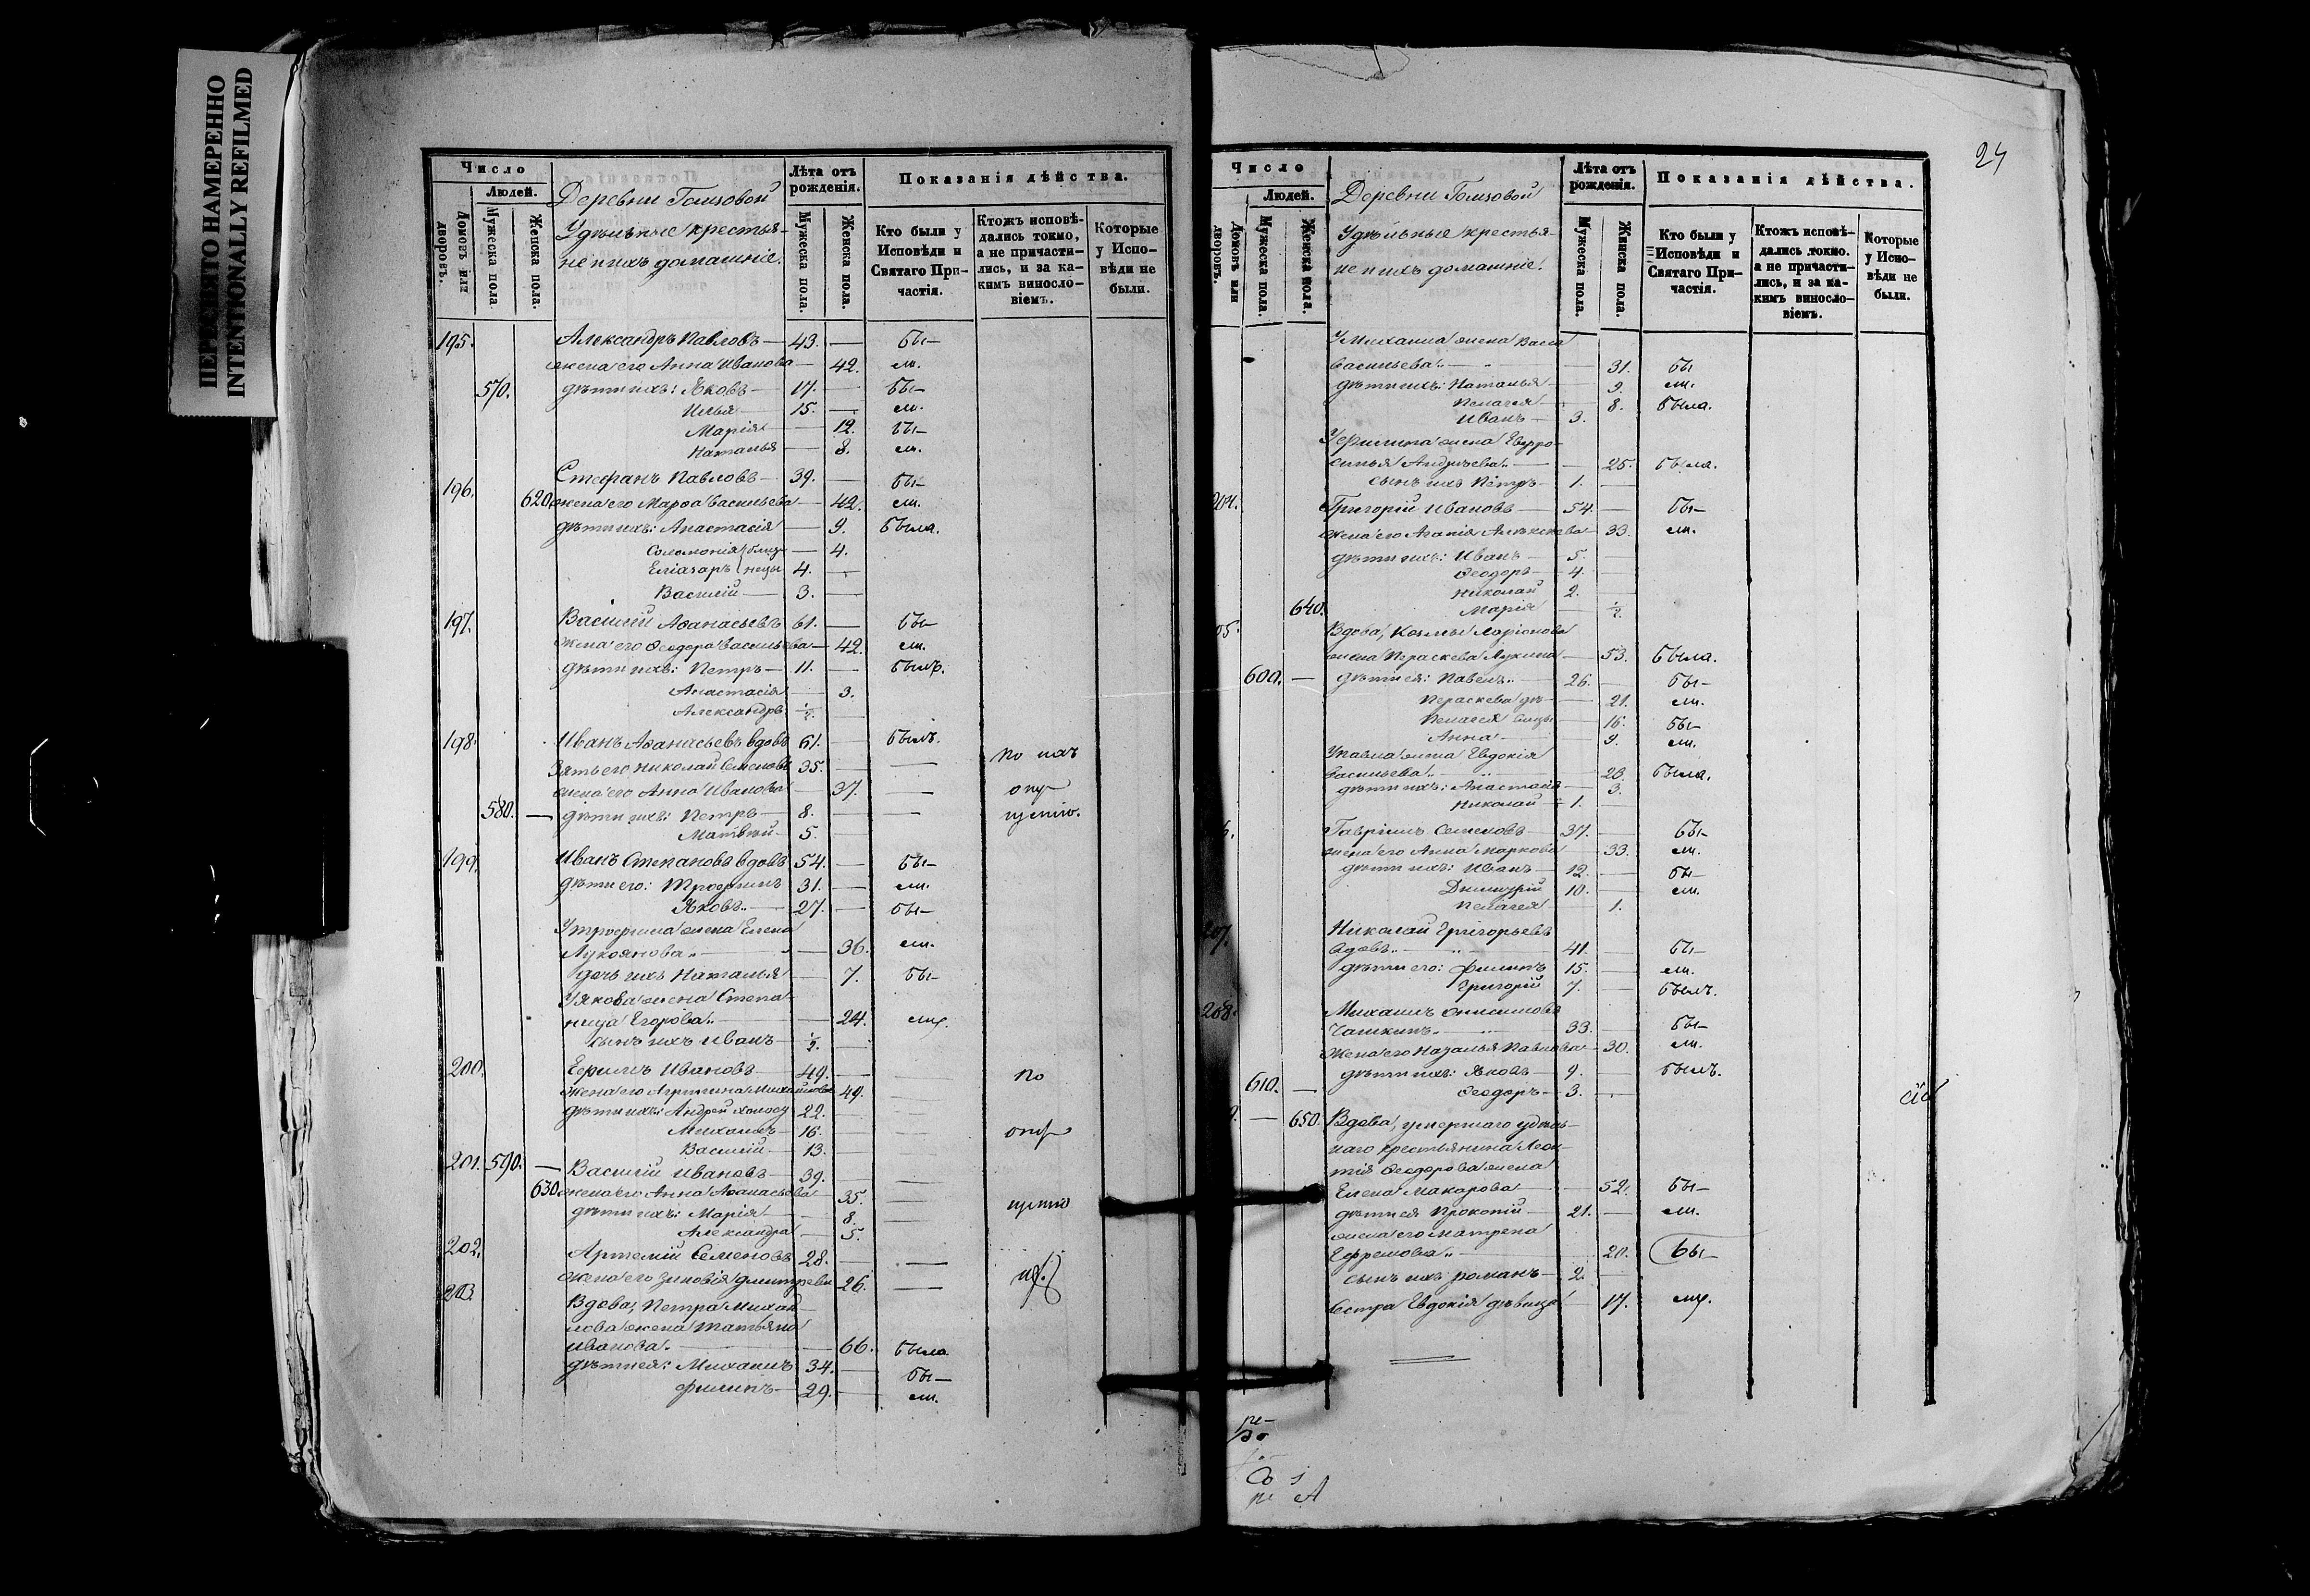 ПЕРЕСНЯТО НАМЕРЕННО
INTENTIONALLY REFILMED
Число
Людей.
Домовъ или дворовъ.
Мужеска пола.
Женска пола.
Деревни Голызовой
Удѣльные крестья-
не и ихъ домашніе.
Лѣта отъ рожденія.
Мужеска пола.
Женска пола.
Показанія дѣйства.
Кто были у Исповѣди и Святаго При-частія.
Ктожъ исповѣ-дались токмо, а не причасти-лись, и за ка-кимъ винosло-віемъ.
Которые у Испо-вѣди не были.
195. Александръ Павловъ — 43. — бы-
жена его Анна Иванова — 42. ли.
570. дѣти ихъ: Яковъ — 17. — бы-
Илья — 15. — ли.
Марія — 12. бы-
Наталья — 8. ли.
196. Стефанъ Павловъ — 39. — бы-
620. жена его Марѳа Васильева — 42. ли.
дѣти ихъ: Анастасія — 9. была.
Соломонія близ- — 4.
Еліазаръ нецы 4. —
Василій — 3. —
197. Василій Аѳанасьевъ 61. — бы-
жена его Ѳеодора Васильева — 42. ли.
дѣти ихъ: Петръ — 11. — былъ.
Анастасія — 3.
Александръ ½. —
198. Иванъ Аѳанасьевъ вдовъ 61. — былъ.
Зять его Николай Семеновъ 35. — — по ихъ
жена его Анна Иванова — 37. — опу-
580. — дѣти ихъ: Петръ — 8. — — щенію.
Матвей — 5. —
199. Иванъ Степановъ вдовъ 54. — бы-
дѣти его: Трофимъ 31. — ли.
Яковъ — 27. — бы-
У Трофима жена Елена
Лукоянова — 36. ли.
дочь ихъ Наталья — 7. бы-
У Якова жена Степа-
нида Егорова — 24. ли.
сынъ ихъ Иванъ — ½. —
200. Ефимъ Ивановъ — 49. — — по
жена его Агрипина Михайлова 49. —
дѣти ихъ: Андрей холост 22. —
Михаилъ — 16. — опу-
Василій — 13. —
201. 590. — Василій Ивановъ — 39. —
630. жена его Анна Аѳанасьева 35. — щенію
дѣти ихъ: Марія — 8. —
Александра — 5.
202. Артемій Семеновъ 28. — —
жена его Зиновія Дмитрева 26. —
203. Вдова, Петра Михай-
лова жена Татьяна
Иванова — 66. была.
дѣти ея: Михаилъ 34. — бы-
Филипъ — 29. — ли.
24
Число
Людей.
Домовъ или дворовъ.
Мужеска пола.
Женска пола.
Деревни Голызовой
Удѣльные крестья-
не и ихъ домашніе.
Лѣта отъ рожденія.
Мужеска пола.
Женска пола.
Показанія дѣйства.
Кто были у Исповѣди и Святаго При-частія.
Ктожъ исповѣ-дались токмо. а не причасти-лись, и за ка-кимъ винosло-віемъ.
Которые у Испо-вѣди не были.
У Михаила жена
Васильева — 31. бы
дѣти ихъ: Наталья — 9. ли.
Пелагея — 8. была.
Иванъ — 3.
У Филипа жена Евфро-
синья Андреева — 25. была.
сынъ ихъ Петръ — 1. —
204. Григорій Ивановъ — 54. — бы-
жена его Агапія Алексѣева 33. ли.
дѣти ихъ: Иванъ — 5. —
Ѳеодоръ — 4. —
Николай 2. —
640. Марія — ½.
05. Вдова, Козмы Ларіонова
жена Параскева Лукина — 53. была.
600. — дѣти ея: Павелъ 26. — бы-
Параскева дѣ- — 21. ли.
Пелагея вицы 16. бы-
Анна — 9. ли.
У Павла жена Евдокія
Васильева — 26. была.
дѣти ихъ: Анастасія — 3.
Николай — 1. —
6. Гавріилъ Семеновъ — 37. — бы-
жена его Анна Маркова — 33. ли.
дѣти ихъ: Иванъ — 12. — бы-
Димитрій 10. — ли.
Пелагея — 1.
207. Николай Григорьевъ
вдовъ — 41. — бы-
дѣти его: Филипъ 15. — ли.
Григорій 7. — былъ.
208. Михаилъ Онисимовъ
Чашкинъ — 33. — бы-
жена его Наталья Павлова — 30. ли.
дѣти ихъ: Яковъ — 9. — былъ.
610. — Ѳеодоръ — 3. —
9. — 650. Вдова, умершаго удѣль-
наго крестьянина Леон-
тія Ѳеодорова жена
Елена Макарова — 52. бы-
дѣти ея Прокопій — 21. — ли.
жена его Матрена
Ефремова — 20. бы-
сынъ ихъ Романъ — 2. —
Сестра Евдокія дѣвица — 17. ли.